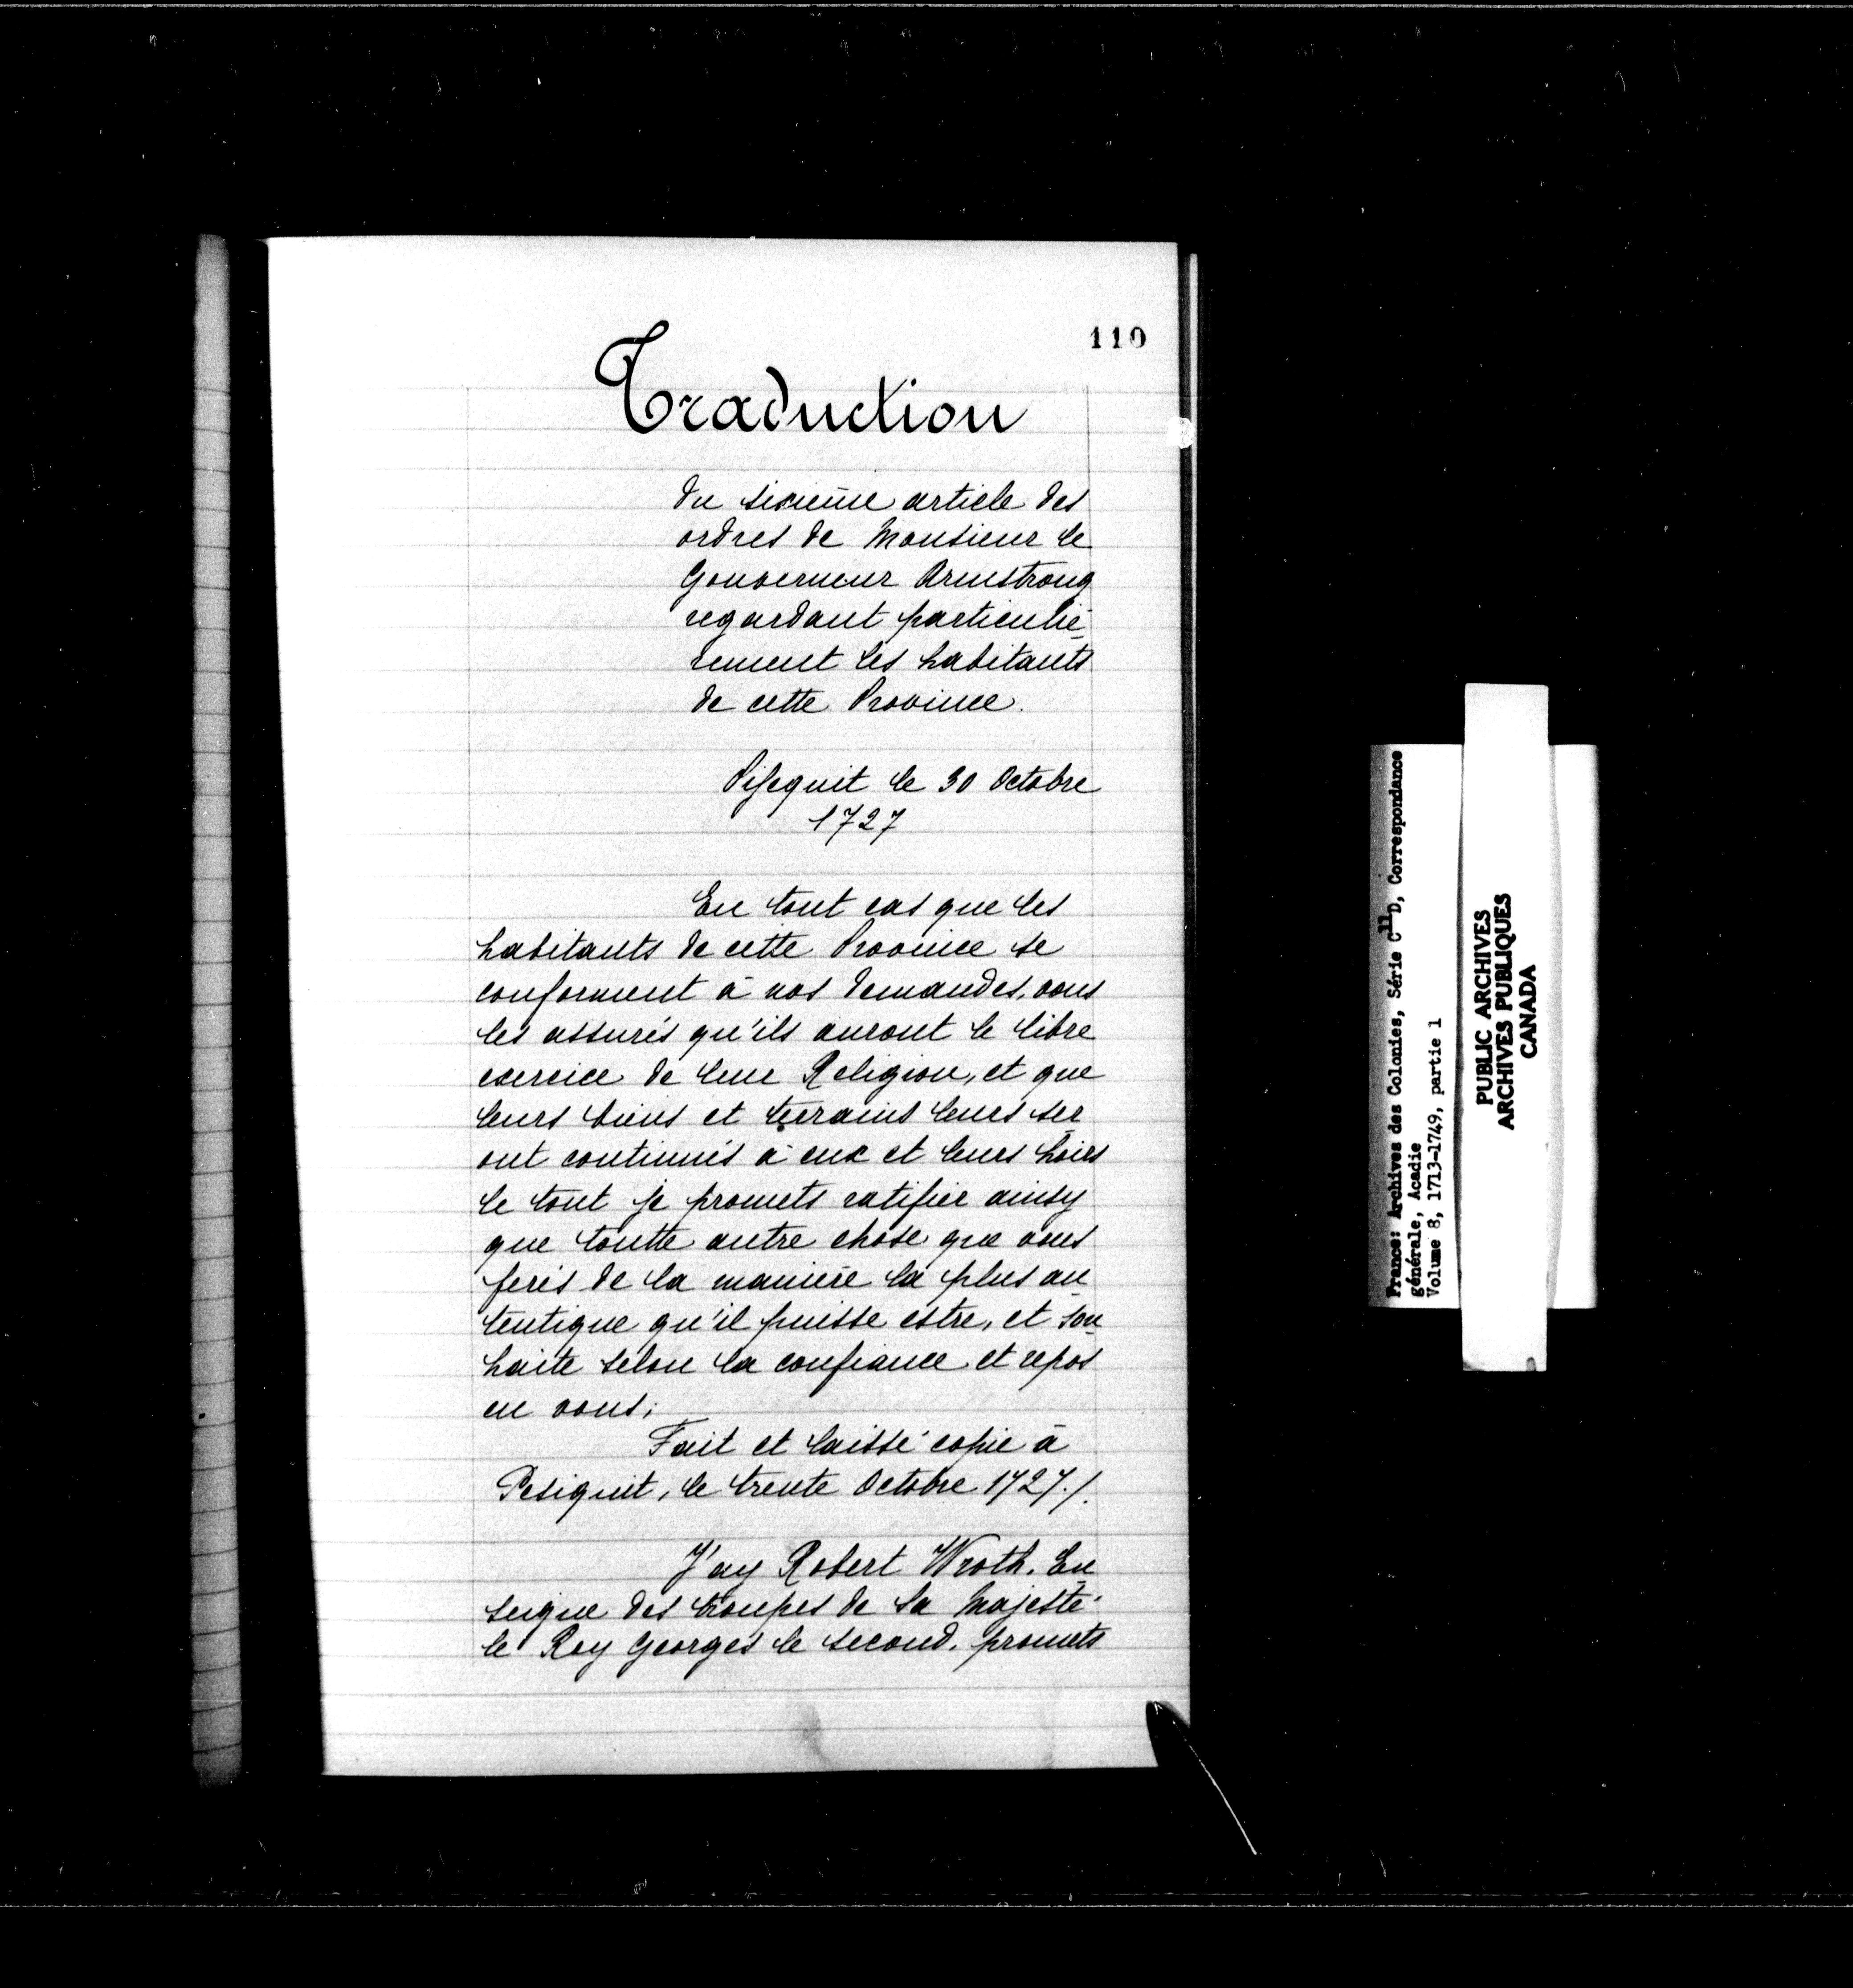 110
Traduction
du sixieme article des
ordres de Monsieur le
Gouverneur Armstrong
regardant particuliè-
rement les habitants
de cette Province.
Pisequit le 30 Octobre
1727
En tout cas que les
habitants de cette Province se
conforment à nos demandes, vous
les assurés qu'ils auront le libre
exercice de leur Religion, et que
leurs biens et terrains leurs ser
ont continués à eux et leurs hoirs
le tout je promets ratifier ainsy
que toutte autre chose que vous
ferés de la manière la plus au
tentique qu'il puisse estre, et sou
haite selon la confiance et repos
en vous;
Fait et laissé copie à
Pesiquit, le trente Octobre 1727./.
J'ay Robert Wroth. En
seigne des troupes de Sa Majesté
le Roy Georges le second. promets
France: Archives des Colonies, Série C11D, Correspondance
générale, Acadie
Volume 8, 1713-1749, partie 1
PUBLIC ARCHIVES
ARCHIVES PUBLIQUES
CANADA